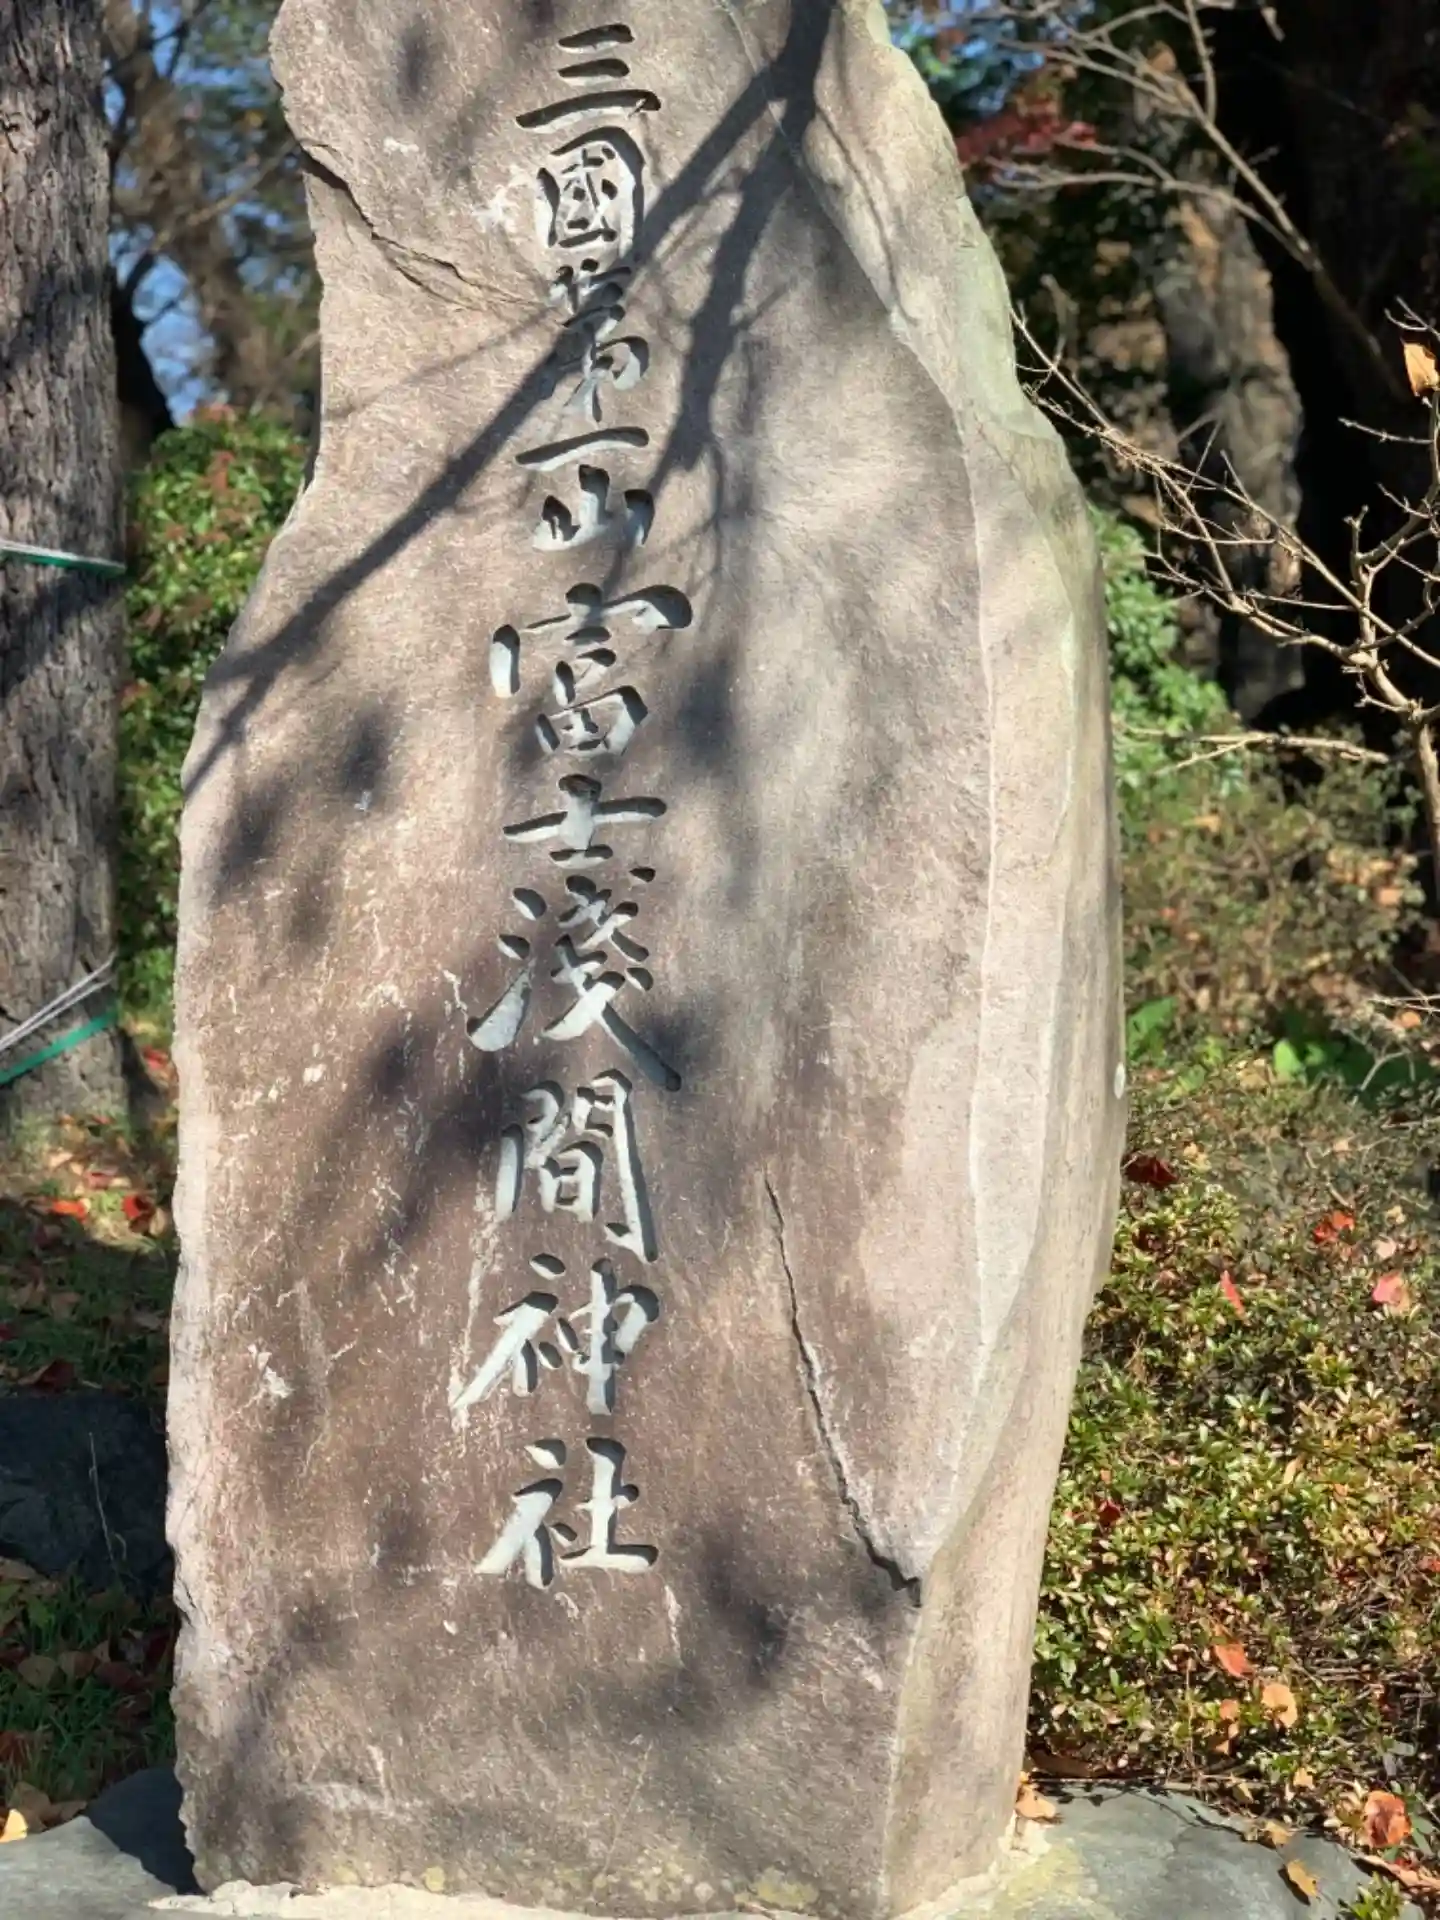 三國第一山富士淺間神社